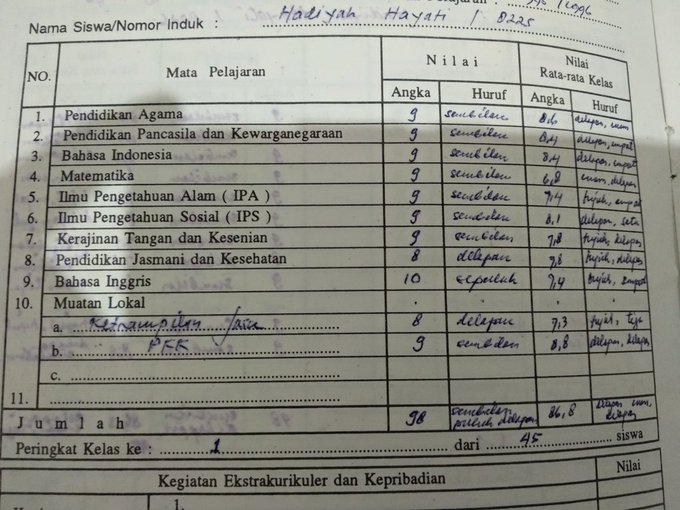 Pelajaran : 1995 / 1996
Nama Siswa/Nomor Induk : Hadiyah Hayati / 8225
NO. Mata Pelajaran Nilai Nilai Rata-rata Kelas
Angka Huruf Angka Huruf
1. Pendidikan Agama 9 sembilan 8,6 delapan, enam
2. Pendidikan Pancasila dan Kewarganegaraan 9 sembilan 8,4 delapan, empat
3. Bahasa Indonesia 9 sembilan 8,4 delapan, empat
4. Matematika 9 sembilan 6,8 enam, delapan
5. Ilmu Pengetahuan Alam ( IPA ) 9 sembilan 7,4 tujuh, empat
6. Ilmu Pengetahuan Sosial ( IPS ) 9 sembilan 8,1 delapan, satu
7. Kerajinan Tangan dan Kesenian 9 sembilan 7,8 tujuh, delapan
8. Pendidikan Jasmani dan Kesehatan 8 delapan 7,8 tujuh, delapan
9. Bahasa Inggris 10 sepuluh 7,4 tujuh, empat
10. Muatan Lokal
a. Ketrampilan Jasa 8 delapan 7,3 tujuh, tiga
b. PKK 9 sembilan 8,8 delapan, delapan
c.
11.
Jumlah 98 sembilan puluh delapan 86,8 delapan enam, delapan
Peringkat Kelas ke : 1 dari 45 siswa
Kegiatan Ekstrakurikuler dan Kepribadian Nilai
1.